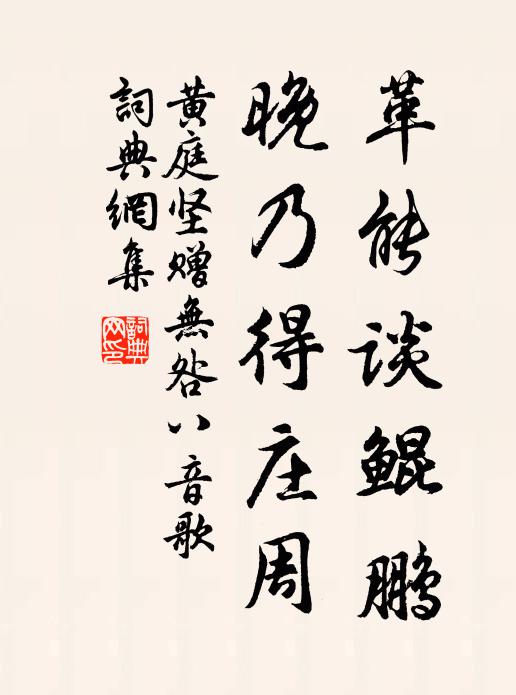 革能谈鲲鹏
晚乃得庄周
黄庭坚赠無咎八音歌
詞典網集
詞典網印